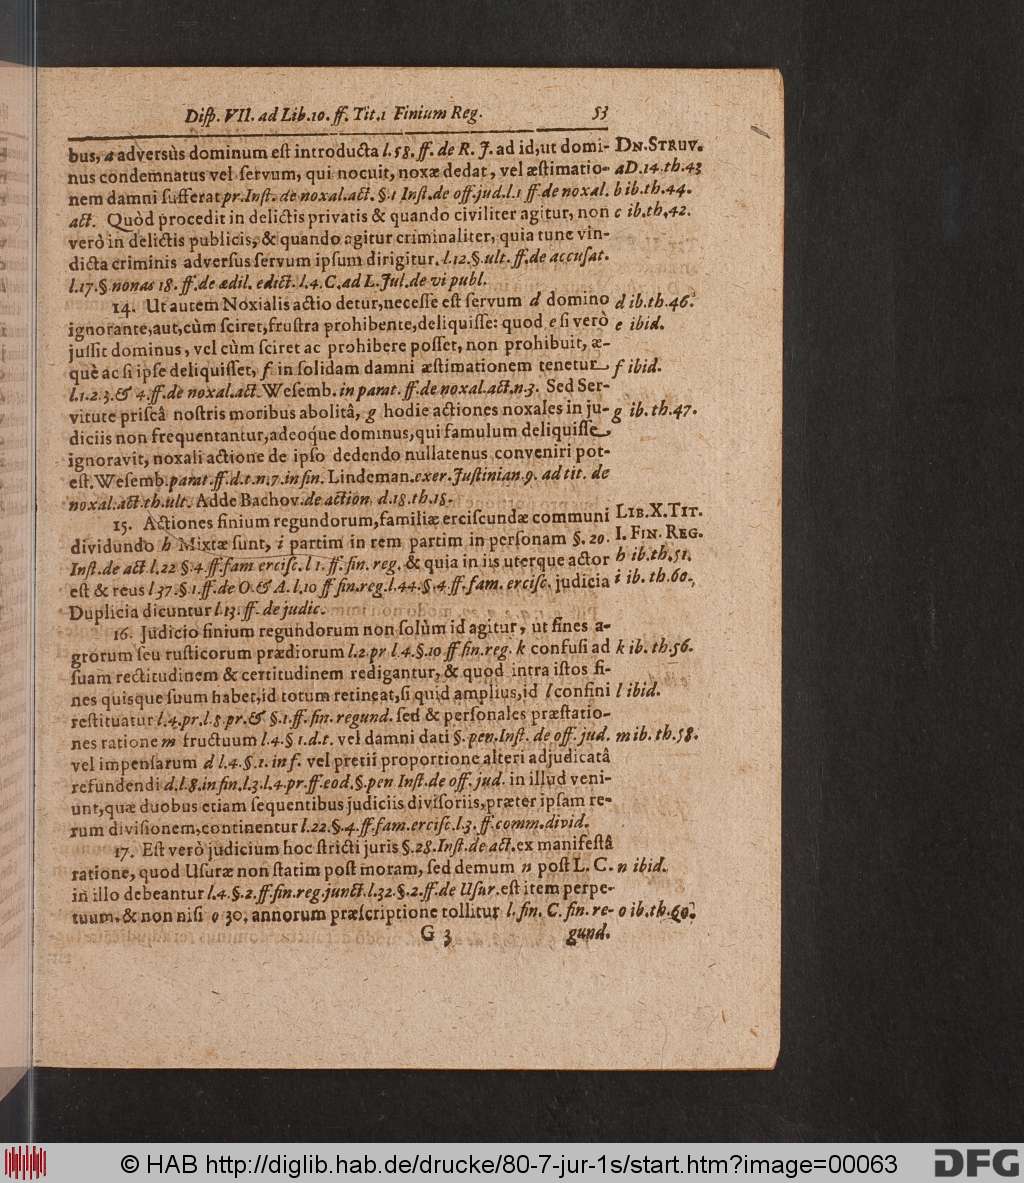 Disp. VII. ad Lib.10. ff. Tit.1 Finium Reg. 53
bus, a adversùs dominum est introducta l.58. ff. de R. J. ad id, ut domi- DN. STRUV.
nus condemnatus vel servum, qui nocuit, noxæ dedat, vel æstimatio- a D.14. th.43
nem damni sufferat pr. Inst. de noxal. act. §.1 Inst. de off. jud. l.1 ff. de noxal. b ib. th.44.
act. Quòd procedit in delictis privatis & quando civiliter agitur, non c ib. th.42.
verò in delictis publicis, & quando agitur criminaliter, quia tunc vin-
dicta criminis adversus servum ipsum dirigitur. l.12.§. ult. ff. de accusat.
l.17.§. nonas 18. ff. de ædil. edict. l.4. C. ad L. Jul. de vi publ.
14. Ut autem Noxialis actio detur, necesse est servum d domino d ib. th.46.
ignorante, aut, cùm sciret, frustra prohibente, deliquisse: quod e si verò e ibid.
jussit dominus, vel cùm sciret ac prohibere posset, non prohibuit, æ-
què ac si ipse deliquisset, f in solidam damni æstimationem tenetur f ibid.
l.1.2.3. & 4. ff. de noxal. act. Wesemb. in parat. ff. de noxal. act. n.3. Sed Ser-
vitute priscâ nostris moribus abolitâ, g hodie actiones noxales in ju- g ib. th.47.
diciis non frequentantur, adeoque dominus, qui famulum deliquisse
ignoravit, noxali actione de ipso dedendo nullatenus conveniri pot-
est. Wesemb. parat. ff. d. t. n.7. in fin. Lindeman. exer. Justinian. 9. ad tit. de
noxal. act. th. ult. Adde Bachov. de action. d.18. th.18.
15. Actiones finium regundorum, familiæ erciscundæ communi LIB. X. TIT.
dividundo h Mixtæ sunt, i partim in rem partim in personam §. 20. I. FIN. REG.
Inst. de act l.22 §.4. ff. fam. ercisc. l 1. ff. fin. reg. & quia in iis uterque actor h ib. th.51.
est & reus l 37.§ 1. ff. de O. & A. l.10 ff fin. reg. l.44.§.4 ff. fam. ercisc. judicia i ib. th.60.
Duplicia dicuntur l.13. ff. de judic.
16. Judicio finium regundorum non solùm id agitur, ut fines a-
grorum seu rusticorum prædiorum l.2. pr l.4.§.10 ff fin. reg. k confusi ad k ib. th.56.
suam rectitudinem & certitudinem redigantur, & quod intra istos fi-
nes quisque suum habet, id totum retineat, si quid amplius, id l confini l ibid.
restituatur l.4. pr. l.8. pr. & §.1. ff. fin. regund. sed & personales præstatio-
nes ratione m fructuum l.4.§ 1. d. t. vel damni dati §. pen. Inst. de off. jud. m ib. th.58.
vel impensarum d l.4.§.1. in f. vel pretii proportione alteri adjudicatâ
refundendi d. l.8. in fin. l.3. l.4. pr. ff. eod. §. pen Inst. de off. jud. in illud veni-
unt, quæ duobus etiam sequentibus judiciis divisoriis, præter ipsam re-
rum divisionem, continentur l.22.§.4. ff. fam. ercisc. l.3. ff. comm. divid.
17. Est verò judicium hoc stricti juris §.28. Inst. de act. ex manifestâ
ratione, quod Usuræ non statim post moram, sed demum n post L. C. n ibid.
in illo debeantur l.4.§.2. ff. fin. reg. junct. l.32.§.2. ff. de Usur. est item perpe-
tuum, & non nisi o 30. annorum præscriptione tollitur l. fin. C. fin. re- o ib. th.60.
G 3 gund.
© HAB http://diglib.hab.de/drucke/80-7-jur-1s/start.htm?image=00063 DFG